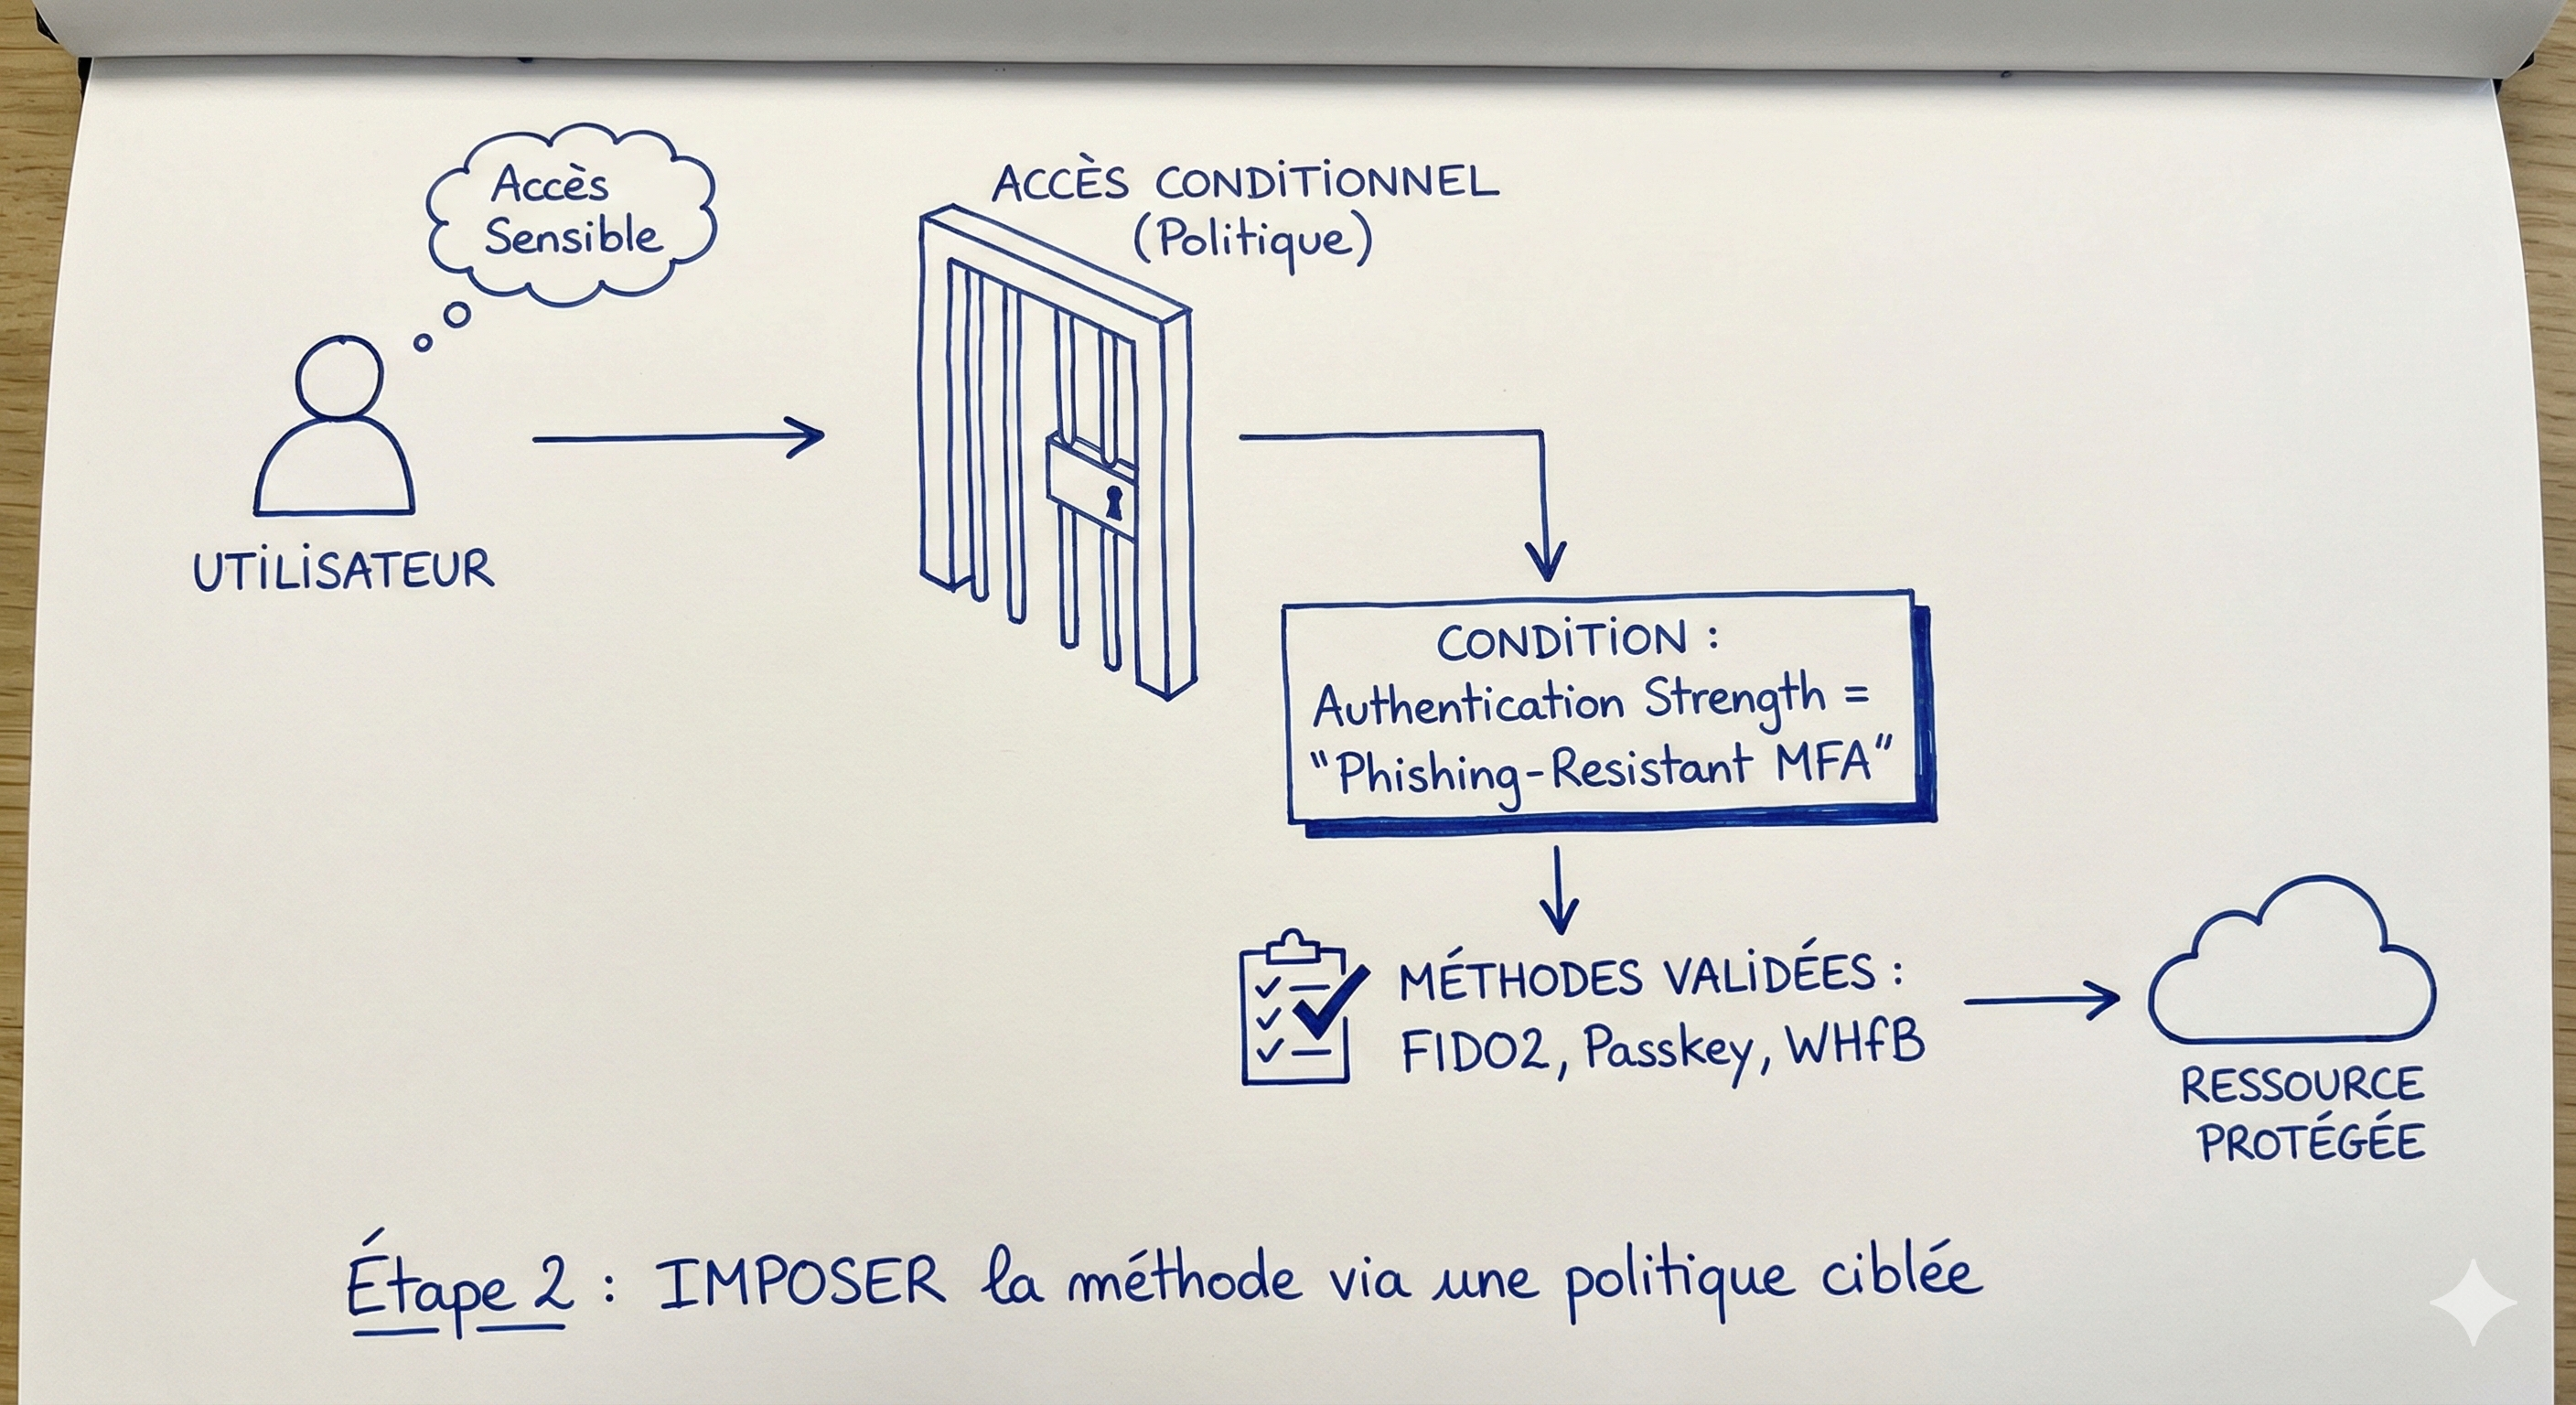 Accès
Sensible
UTILISATEUR
ACCÈS CONDITIONNEL
(Politique)
CONDITION :
Authentication Strength =
"Phishing-Resistant MFA"
MÉTHODES VALIDÉES :
FIDO2, Passkey, WHfB
RESSOURCE
PROTÉGÉE
Étape 2 : IMPOSER la méthode via une politique ciblée